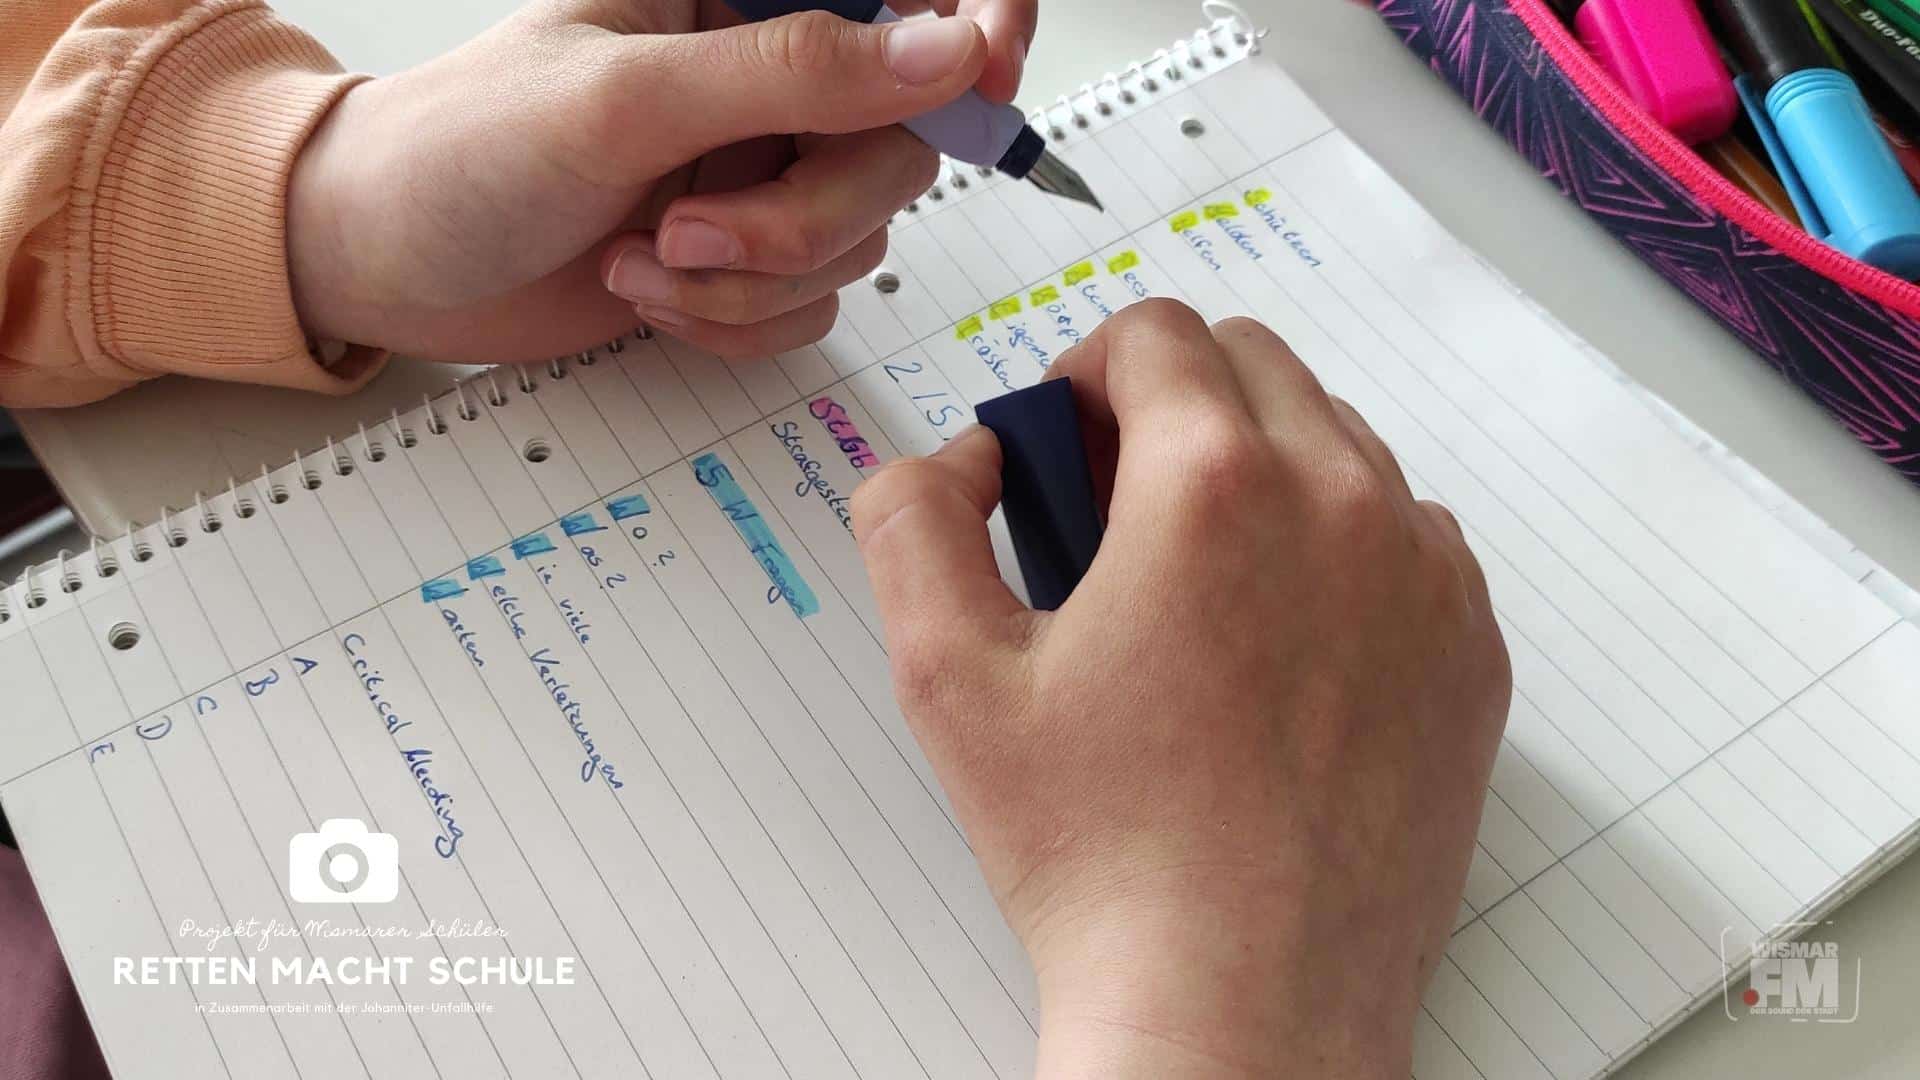 Schützen
Melden
Helfen
Atem
Trösten
2 15
StGb
5 W Fragen
Wo?
Was?
Wie viele
Welche Verletzungen
Warten
Critical bleeding
A
B
C
D
E
Projekt für Wismarer Schüler
RETTEN MACHT SCHULE
in Zusammenarbeit mit der Johanniter-Unfallhilfe
WISMAR
.FM
DER SOUND DER STADT